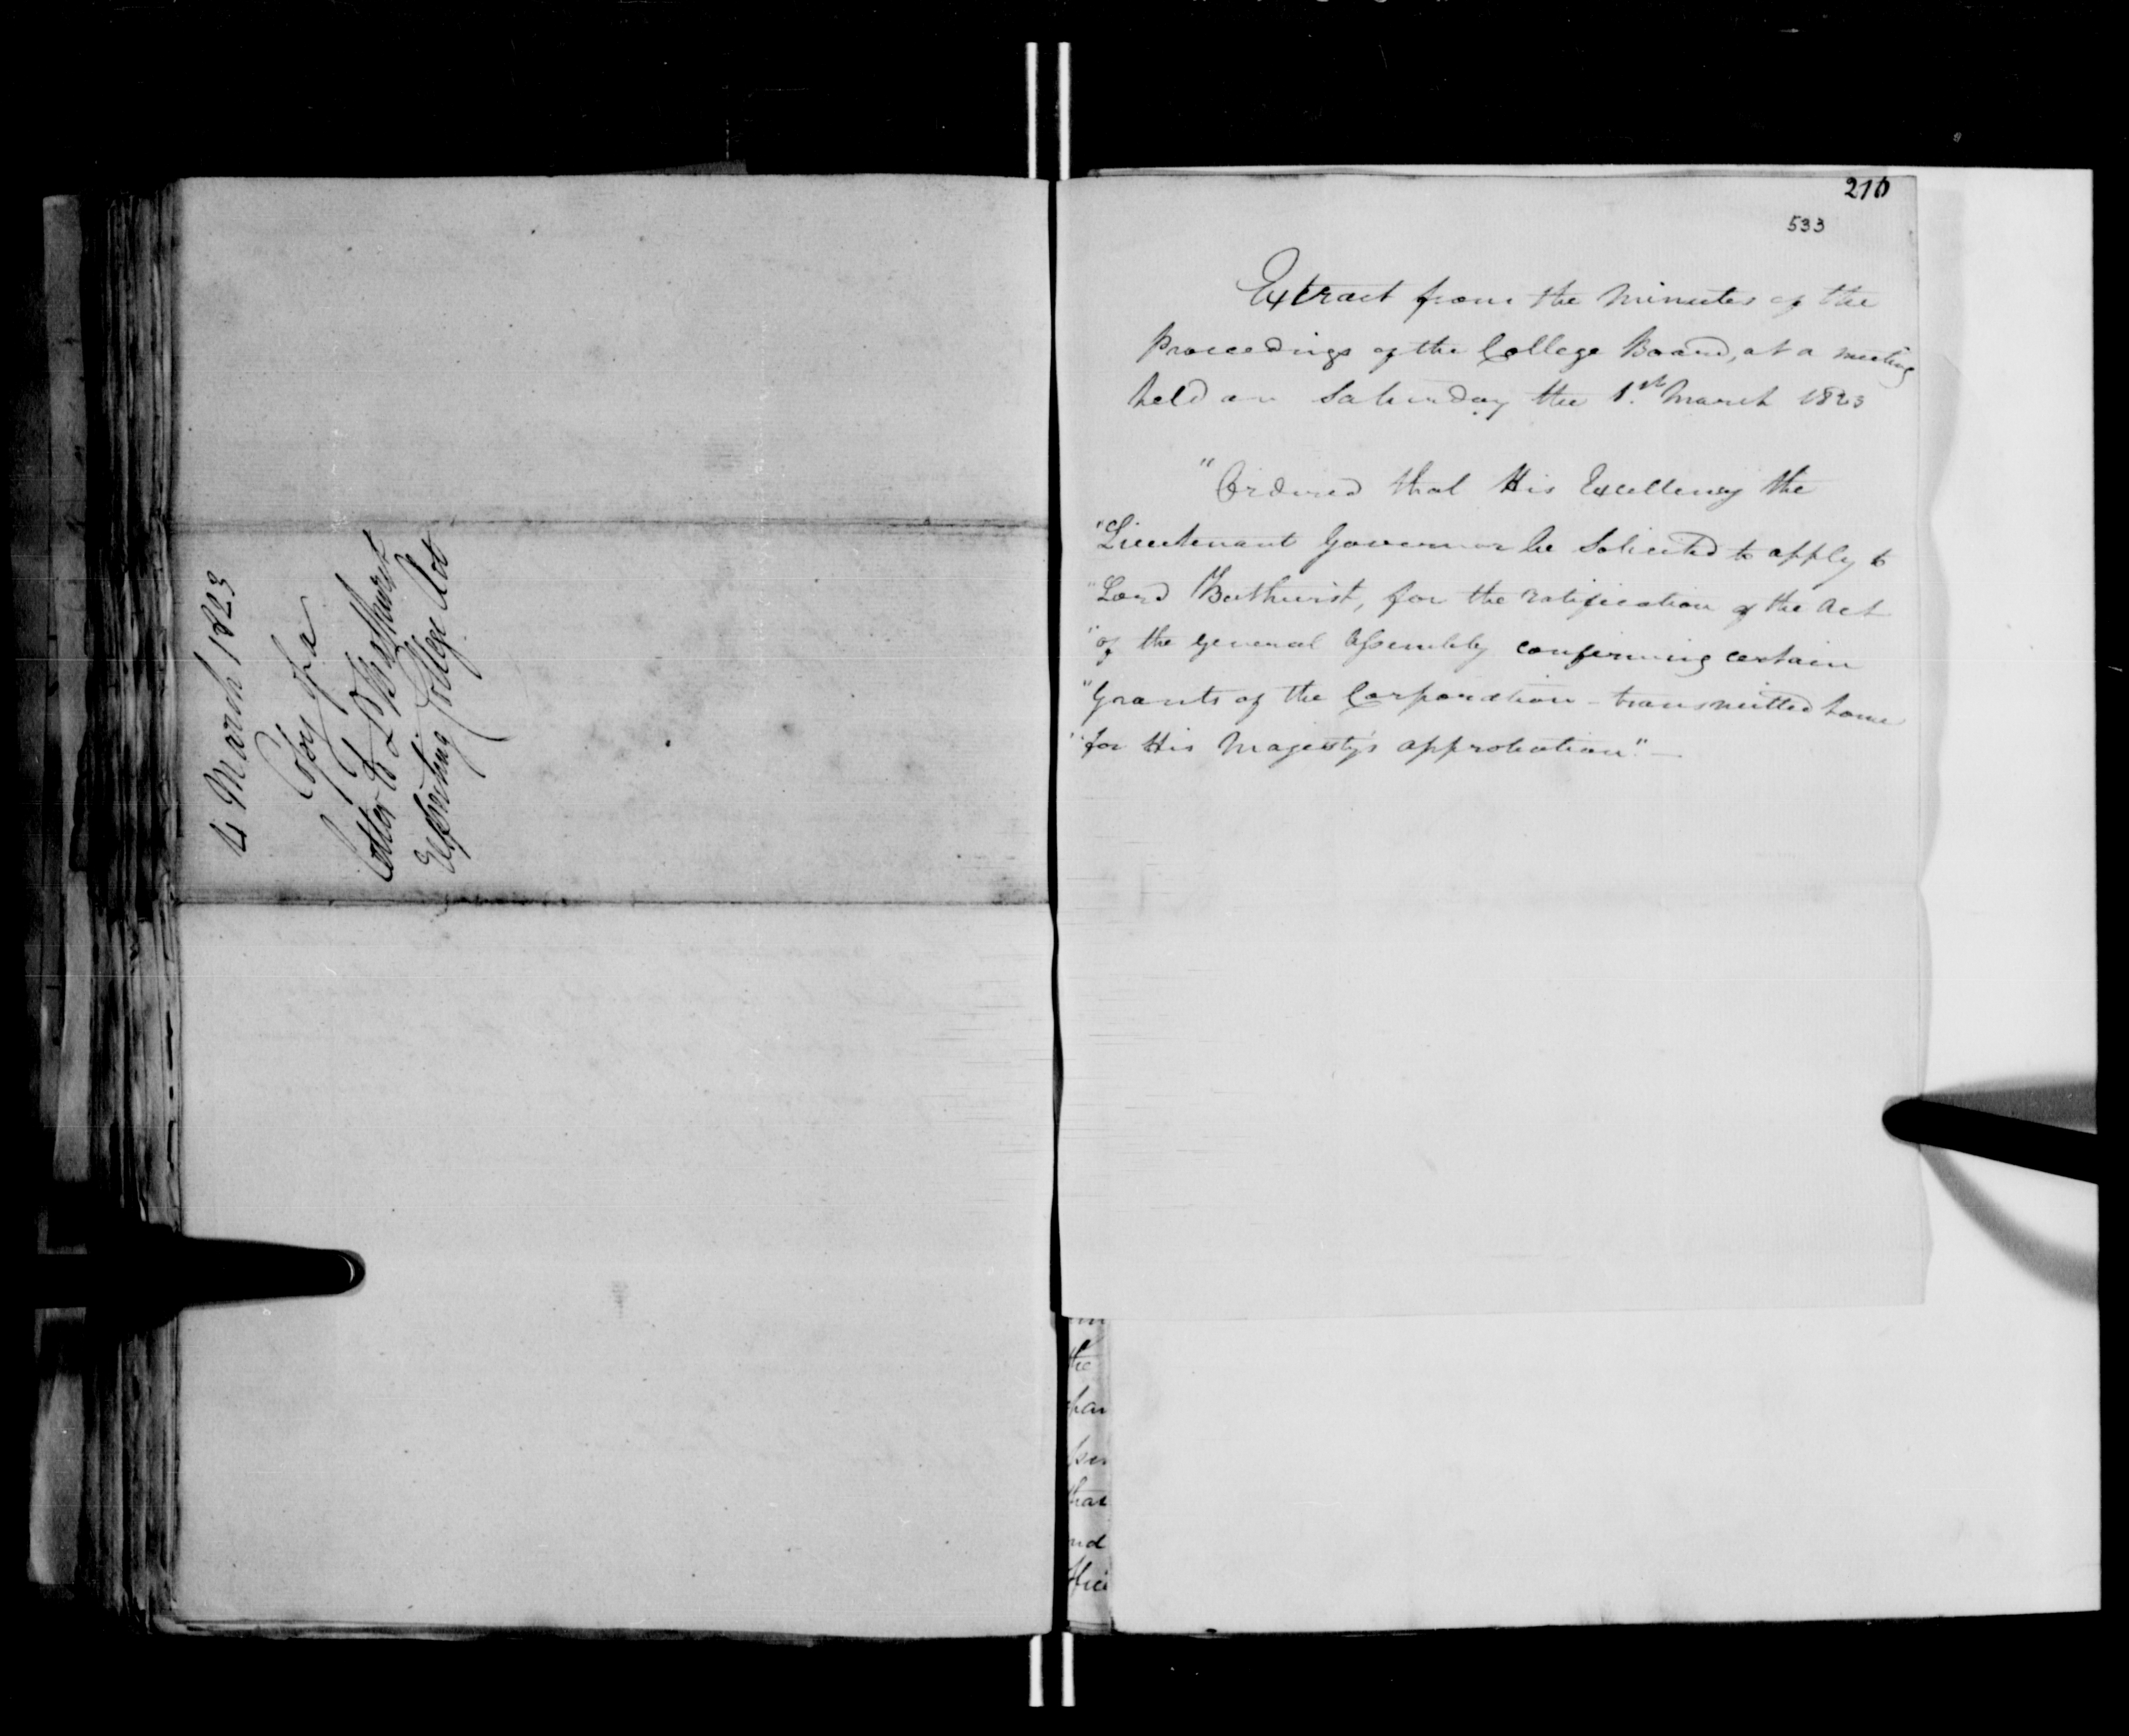 4 March 1823
Copy of a
Letter to Ld Bathurst
respecting College Act
210
533
Extract from the Minutes of the
Proceedings of the College Board, at a meeting
held on Saturday the 1st. March 1823
"Ordered that His Excellency the
"Lieutenant Governor be Solicited to apply to
"Lord Bathurst, for the ratification of the Act
"of the General Assembly confirming certain
"Grants of the Corporation - transmitted home
"for His Majesty's approbation." —
the
par
per
that
nd